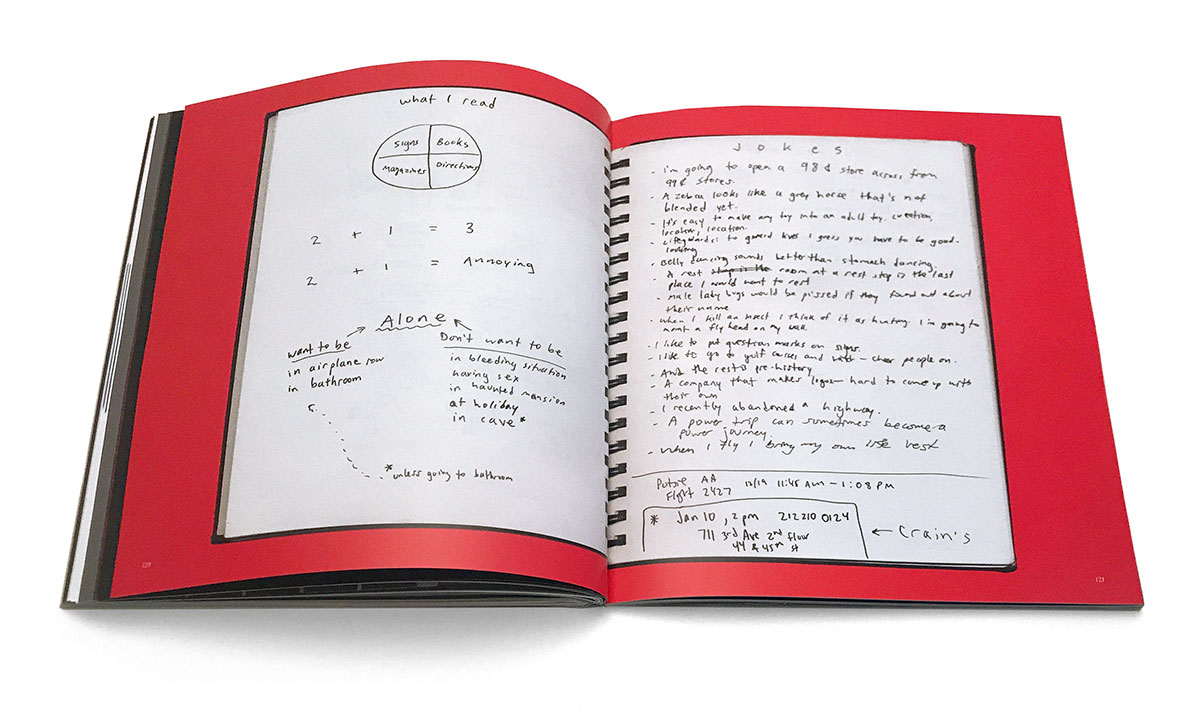 what I read
Signs
Books
Magazines
Directions
2 + 1 = 3
2 + 1 = Annoying
Alone
want to be
in airplane row
in bathroom
Don't want to be
in bleeding situation
having sex
in haunted mansion
at holiday
in cave*
*unless going to bathroom
120
Jokes
- I'm going to open a 98¢ store across from
99¢ stores.
- A zebra looks like a grey horse that's not
blended yet.
- It's easy to make any toy into an adult toy.
location, location.
- Lifeguards: to guard lives I guess you have to be good-
looking
- Belly dancing sounds better than stomach dancing
- A rest room at a rest stop is the last
place I would want to rest
- male lady bugs would be pissed if they found out about
their name
- when I kill an insect I think of it as hunting. I'm going to
mount a fly head on my wall.
- I like to put question marks on signs.
- I like to go to golf courses and cheer people on.
- And the rest is pre-history
- A company that makes logos - hard to come up with
their own
- I recently abandoned a highway.
- A power trip can sometimes become a
power journey
- when I fly I bring my own life vest
AA
Flight 2427 12/19 11:45 AM - 1:08 PM
* Jan 10, 2 pm 212 210 0124
711 3rd Ave 2nd Floor
44 & 45th st
← Crain's
121